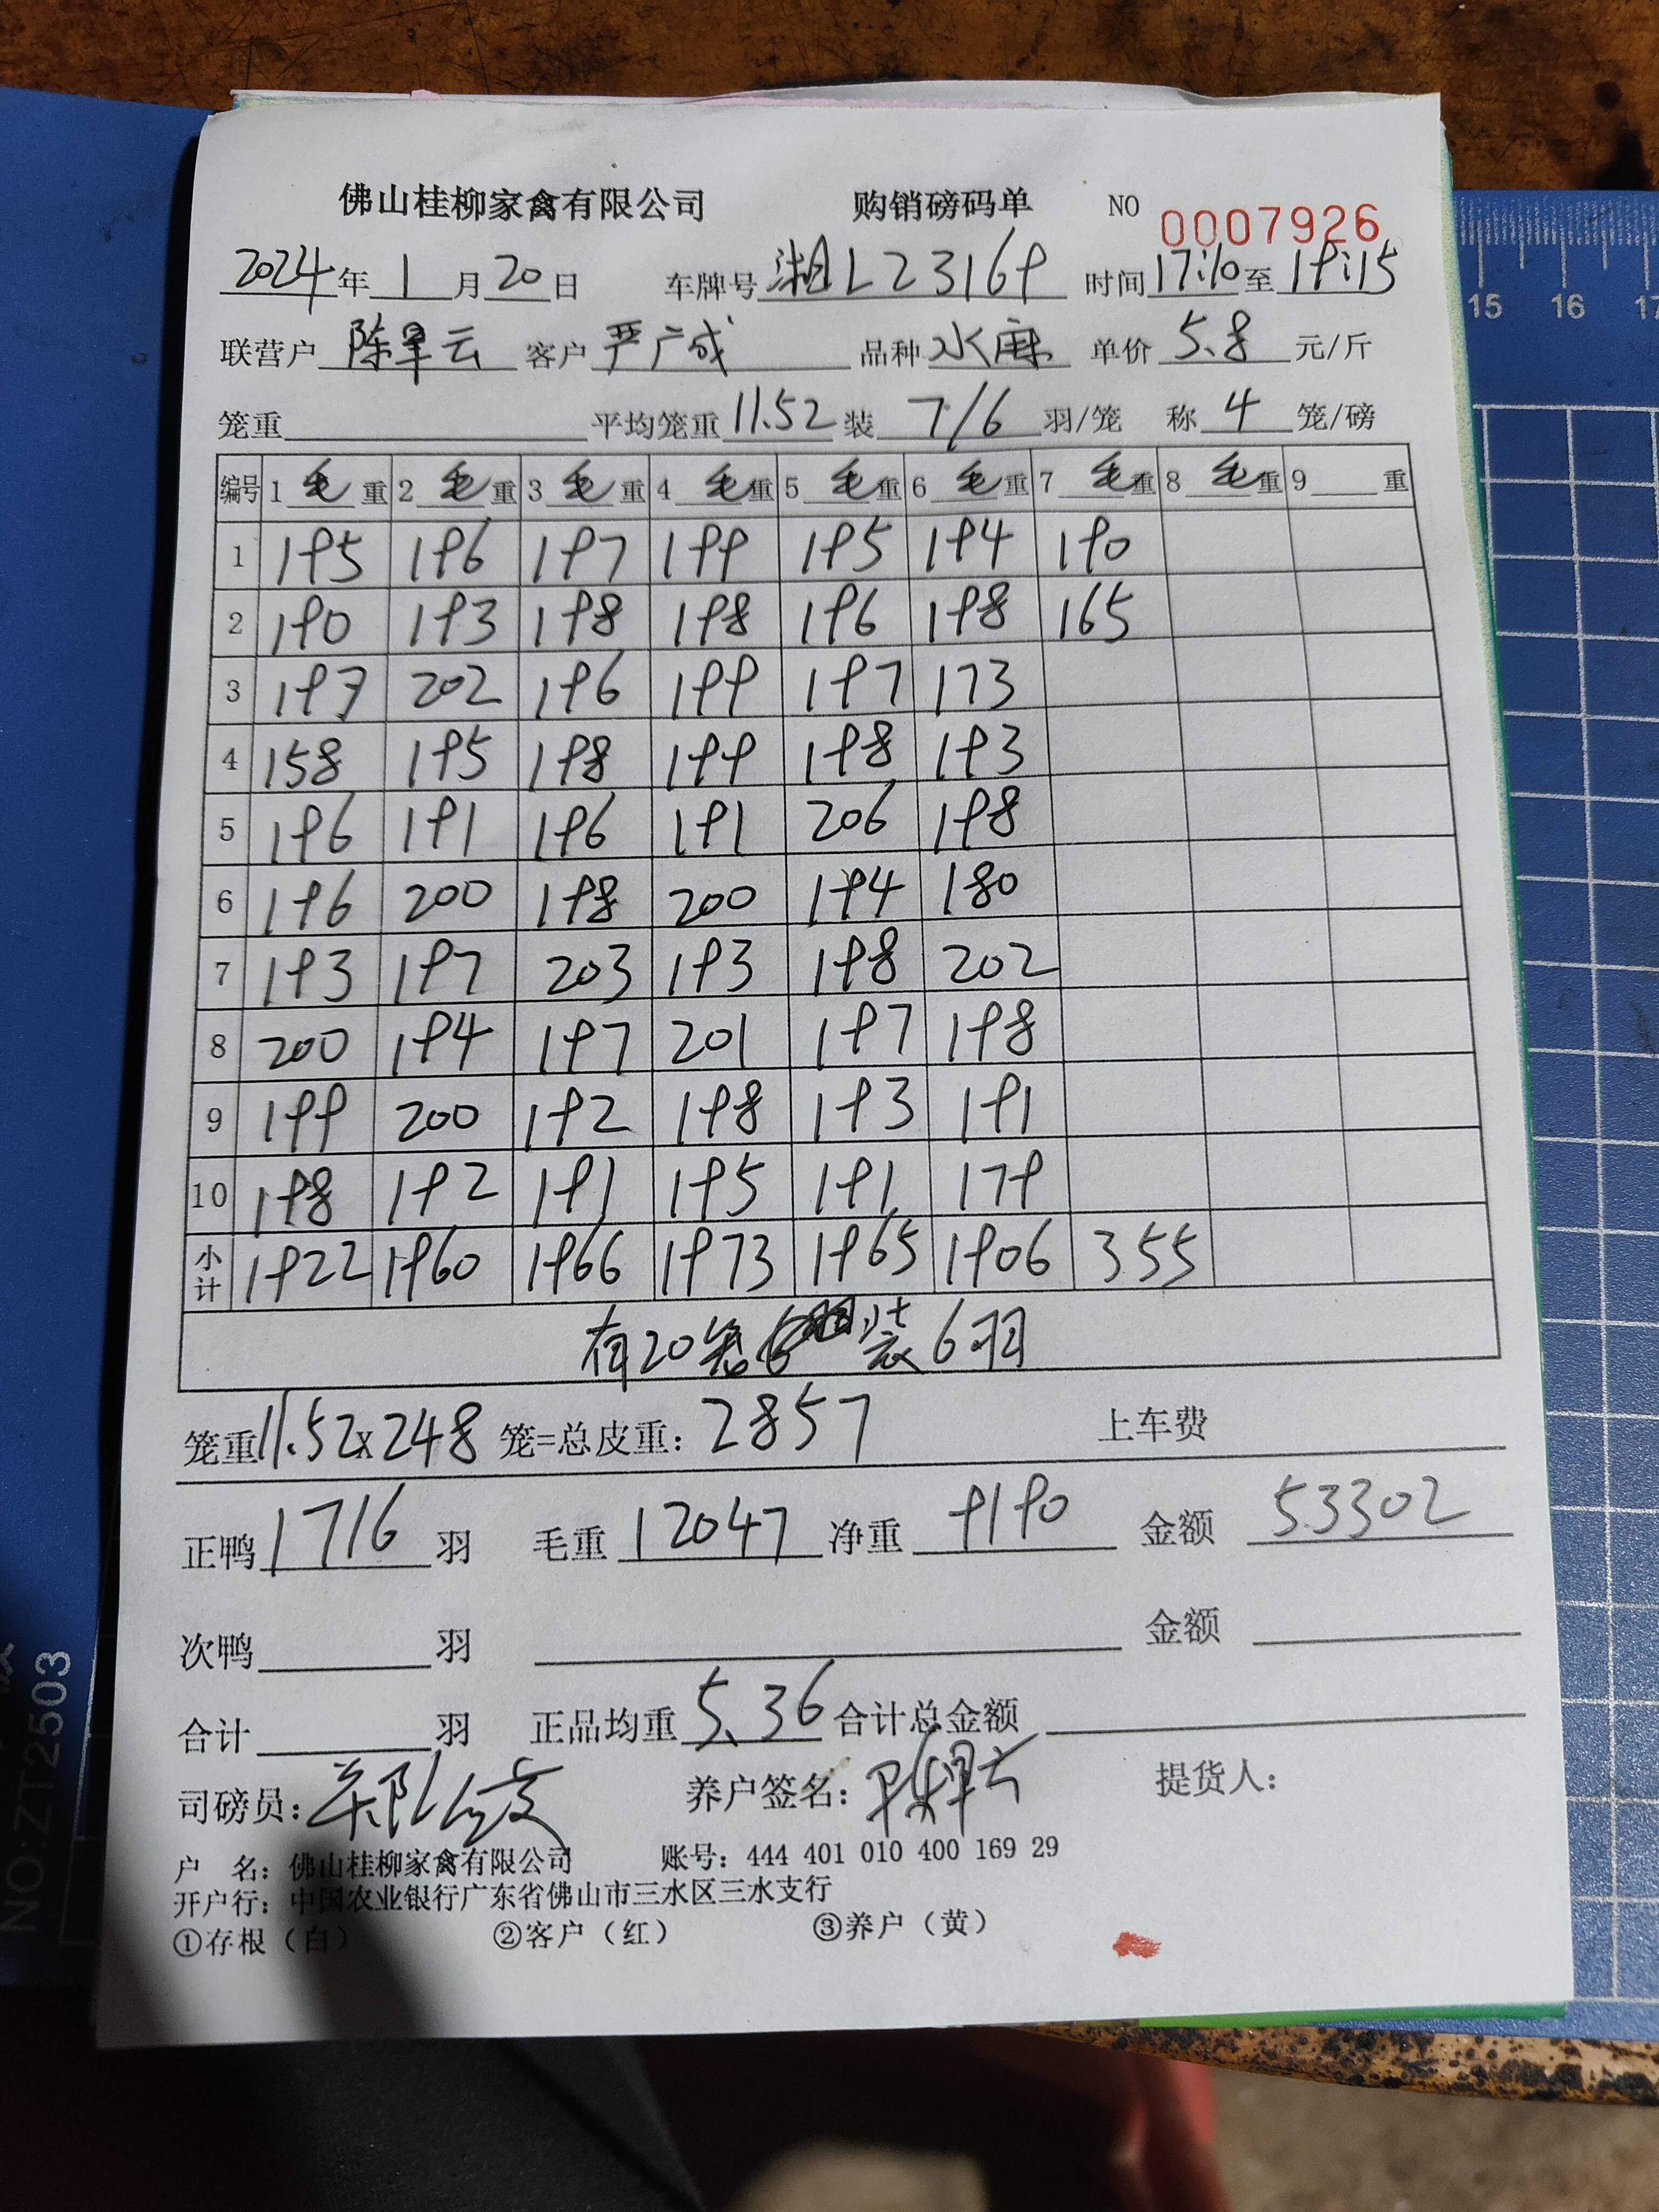 佛山桂柳家禽有限公司 购销磅码单 NO 0007926
2024年1月20日 车牌号 湘L23169 时间 17:10 至 19:15
联营户 陈旱云 客户 严广成 品种 水麻 单价 5.8 元/斤
笼重 平均笼重 11.52 装 7/6 羽/笼 称 4 笼/磅
编号 1 毛重 2 毛重 3 毛重 4 毛重 5 毛重 6 毛重 7 毛重 8 毛重 9 重
1 195 196 197 199 195 194 190
2 190 193 198 198 196 198 165
3 197 202 196 199 197 173
4 158 195 198 199 198 193
5 196 191 196 191 206 198
6 196 200 198 200 194 180
7 193 197 203 193 198 202
8 200 194 197 201 197 198
9 199 200 192 198 193 191
10 198 192 191 195 191 179
小计 1922 1960 1966 1973 1965 1906 355
有20笼装6羽
笼重 11.52x248 笼=总皮重: 2857 上车费
正鸭 1716 羽 毛重 12047 净重 9190 金额 53302
次鸭 羽 金额
合计 羽 正品均重 5.36 合计总金额
司磅员: 养户签名: 陈旱云 提货人:
户 名: 佛山桂柳家禽有限公司 账号: 444 401 010 400 169 29
开户行: 中国农业银行广东省佛山市三水区三水支行
①存根（白） ②客户（红） ③养户（黄）
15 16 17
NO:ZT2503